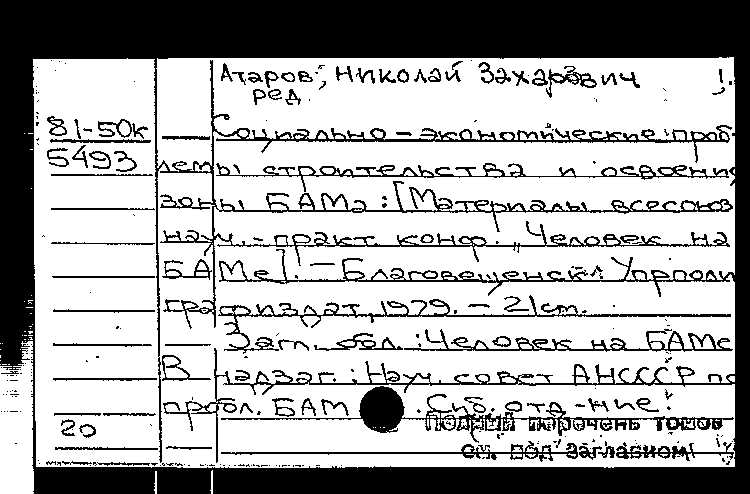 Атаров, Николай Захарович
ред
81-50к Социально-экономические проб-
5493 лемы строительства и освоения
зоны БАМа: [Материалы всесоюз
науч.-практ. конф. „Человек на
БАМе]. - Благовещенск: Упрполи
графиздат, 1979. - 21 cm.
Загл. обл.: Человек на БАМе
В надзаг.: Науч. совет АНСССР по
пробл. БАМ. Сиб. отд-ние.
20 Полный перечень томов
см. под заглавием